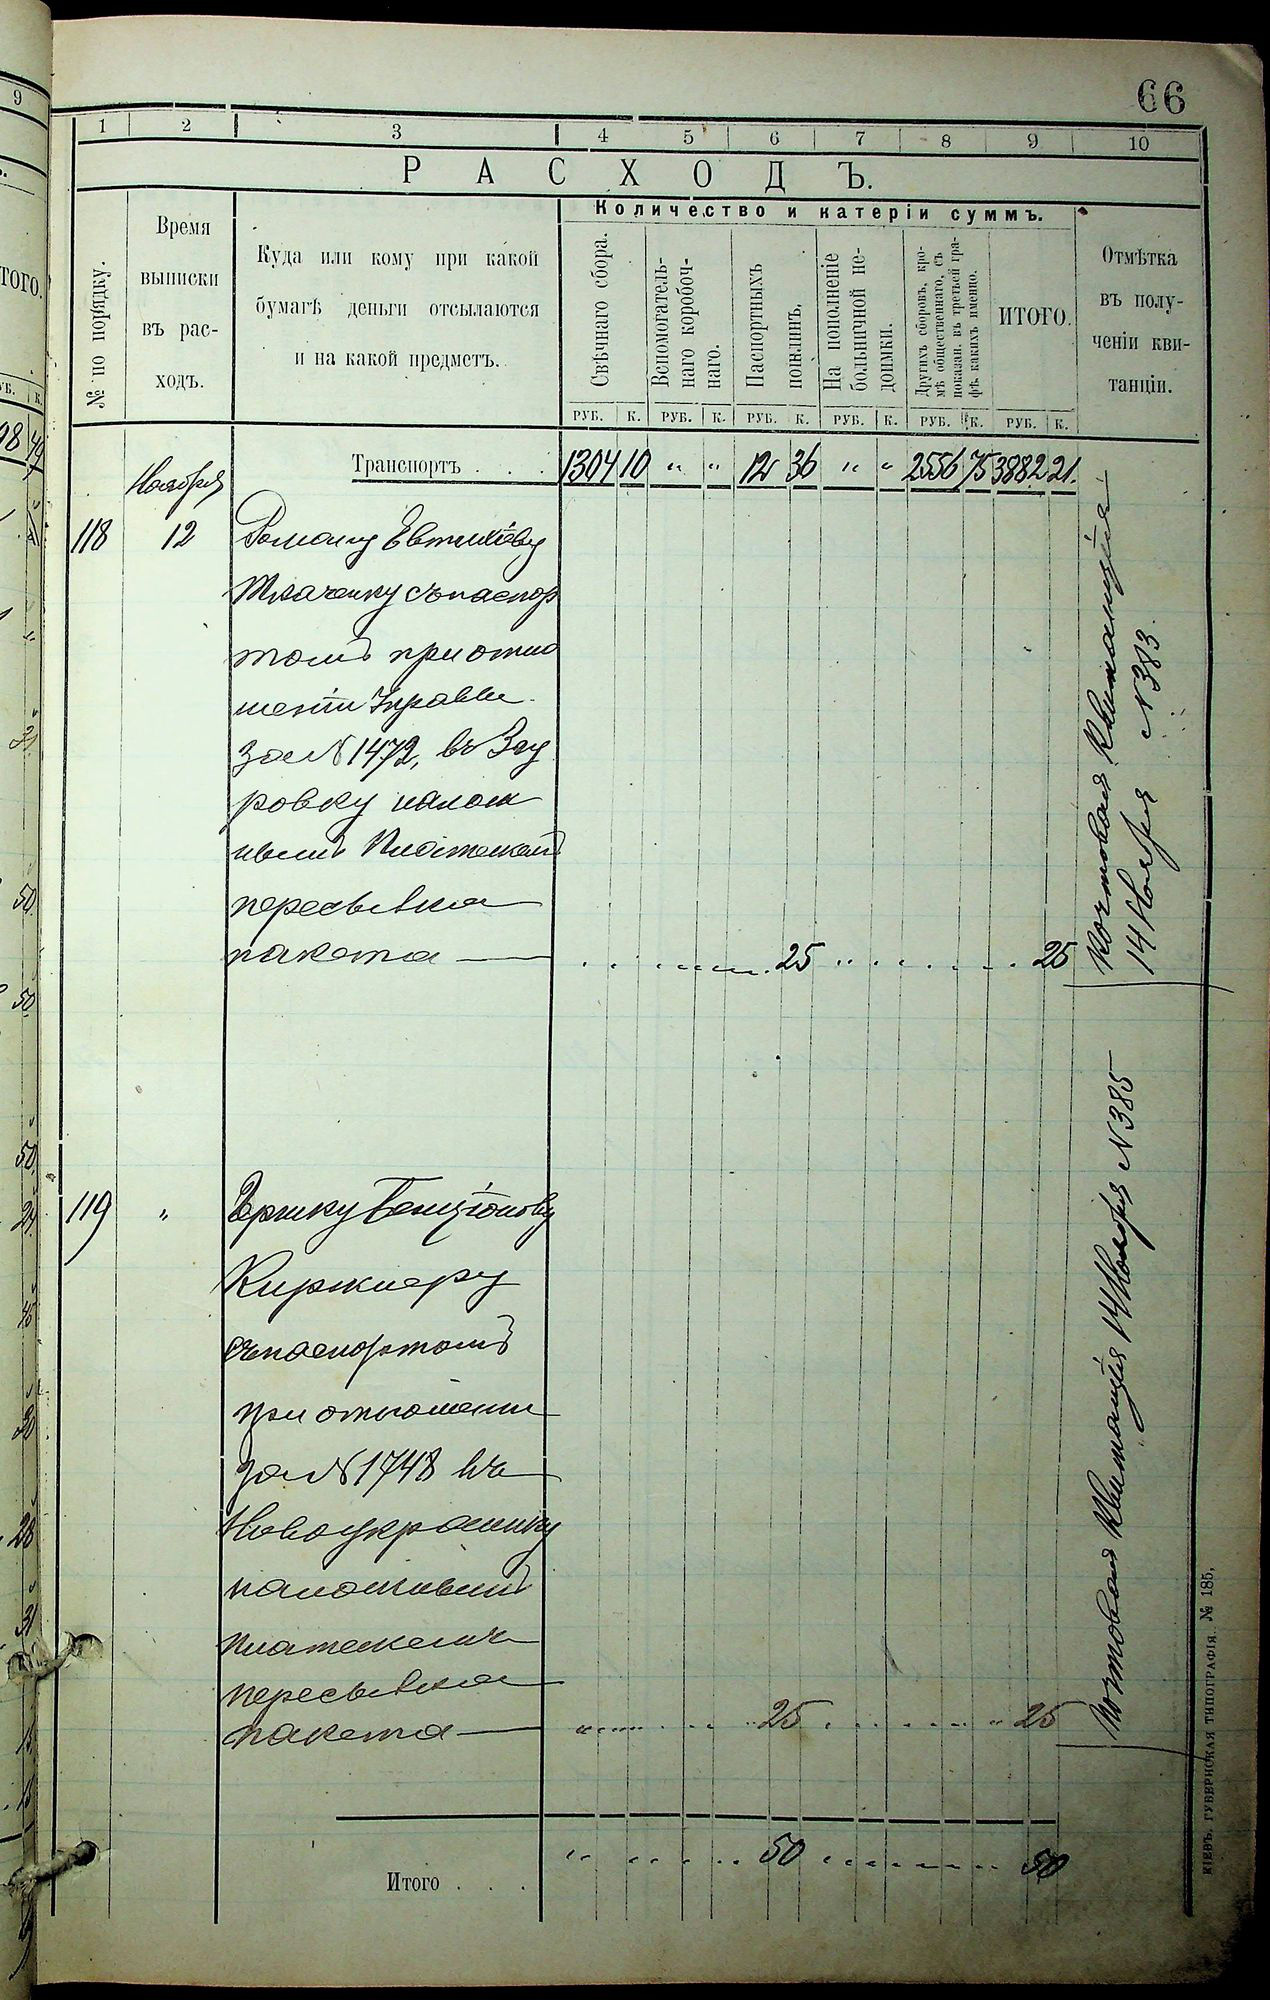 66
1 2 3 4 5 6 7 8 9 10
РАСХОДЪ.
№ по порядку.
Время
выписки
въ рас-
ходъ.
Куда или кому при какой
бумагѣ деньги отсылаются
и на какой предметъ.
Количество и катеріи суммъ.
Свѣчнаго сбора.
Вспомогатель-
наго коробоч-
наго.
Паспортныхъ
пошлинъ.
На пополненіе
больничной не-
доимки.
Другихъ сборовъ, кро-
мѣ общественнаго, съ
показан. въ третьей гра-
фѣ какихъ именно.
ИТОГО.
Отмѣтка
въ полу-
ченіи кви-
танціи.
РУБ. К. РУБ. К. РУБ. К. РУБ. К. РУБ. К. РУБ. К.
Транспортъ . . . 1304 10 " " 12 36 " " 2556 75 3882 21.
Ноября
118 12 Роману Евтихіеву
Ткаченку съ паспор
томъ при отно
шеніи Управы
за № 1472, въ
ровку налож
нымъ Платежемъ
пересылка
пакета — 25 25
Почтовая Квитанція
14 Ноября № 383.
119 " Гершку Бенціонову
Киржнеру
съ паспортомъ
при отношеніи
за № 1748 въ
Новоукраинку
наложнымъ
платежемъ
пересылка
пакета — 25 25
Почтовая Квитанція 14 Ноября № 385
Итого . . . 50 50
КІЕВЪ. ГУБЕРНСКАЯ ТИПОГРАФІЯ. № 185.